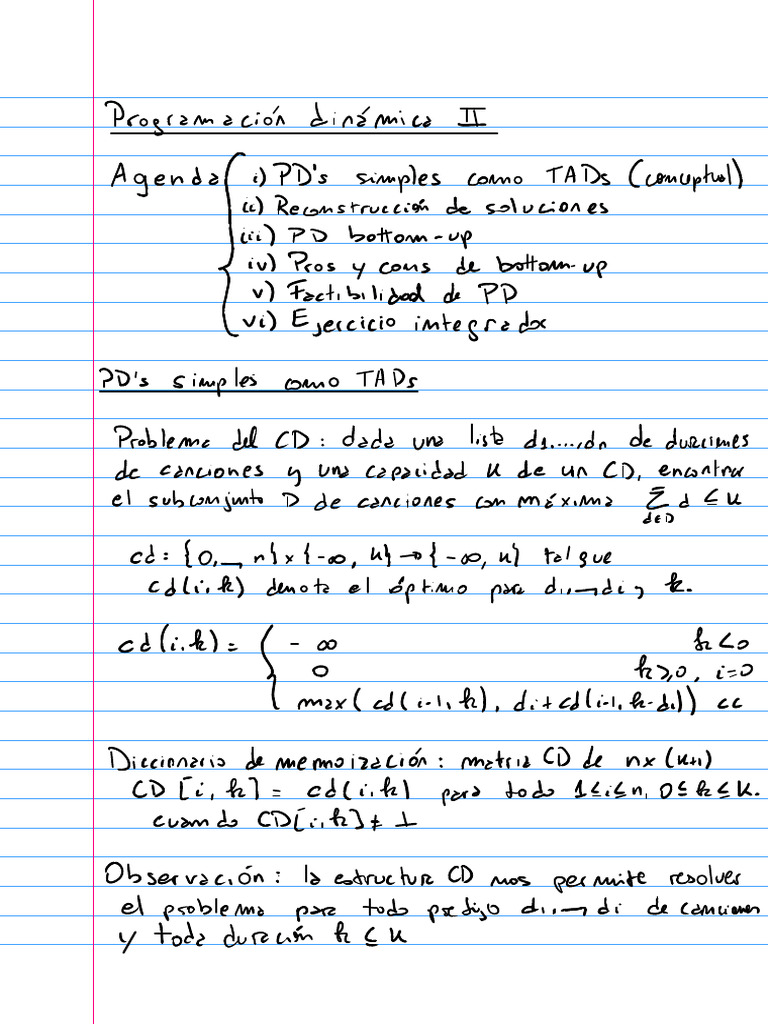 Programación dinámica II
Agenda { i) PD's simples como TADs (conceptual)
ii) Reconstrucción de soluciones
iii) PD bottom-up
iv) Pros y cons de bottom-up
v) Factibilidad de PD
vi) Ejercicio integrador
PD's simples como TADs
Problema del CD: dada una lista d1,...,dn de duraciones
de canciones y una capacidad K de un CD, encontrar
el subconjunto D de canciones con máxima Σ_{d∈D} d ≤ K
cd: {0,...,n} x {-∞, K} → {-∞, K} tal que
cd(i,k) denota el óptimo para d1,...,di y k.
cd(i,k) = { -∞ k<0
0 k≥0, i=0
max(cd(i-1,k), di+cd(i-1,k-di)) cc
Diccionario de memoización: matriz CD de n x (K+1)
CD[i,k] = cd(i,k) para todo 1≤i≤n, 0≤k≤K.
cuando CD[i,k] ≠ ⊥
Observación: la estructura CD nos permite resolver
el problema para todo prefijo d1,...,di de canciones
y toda duración k ≤ K